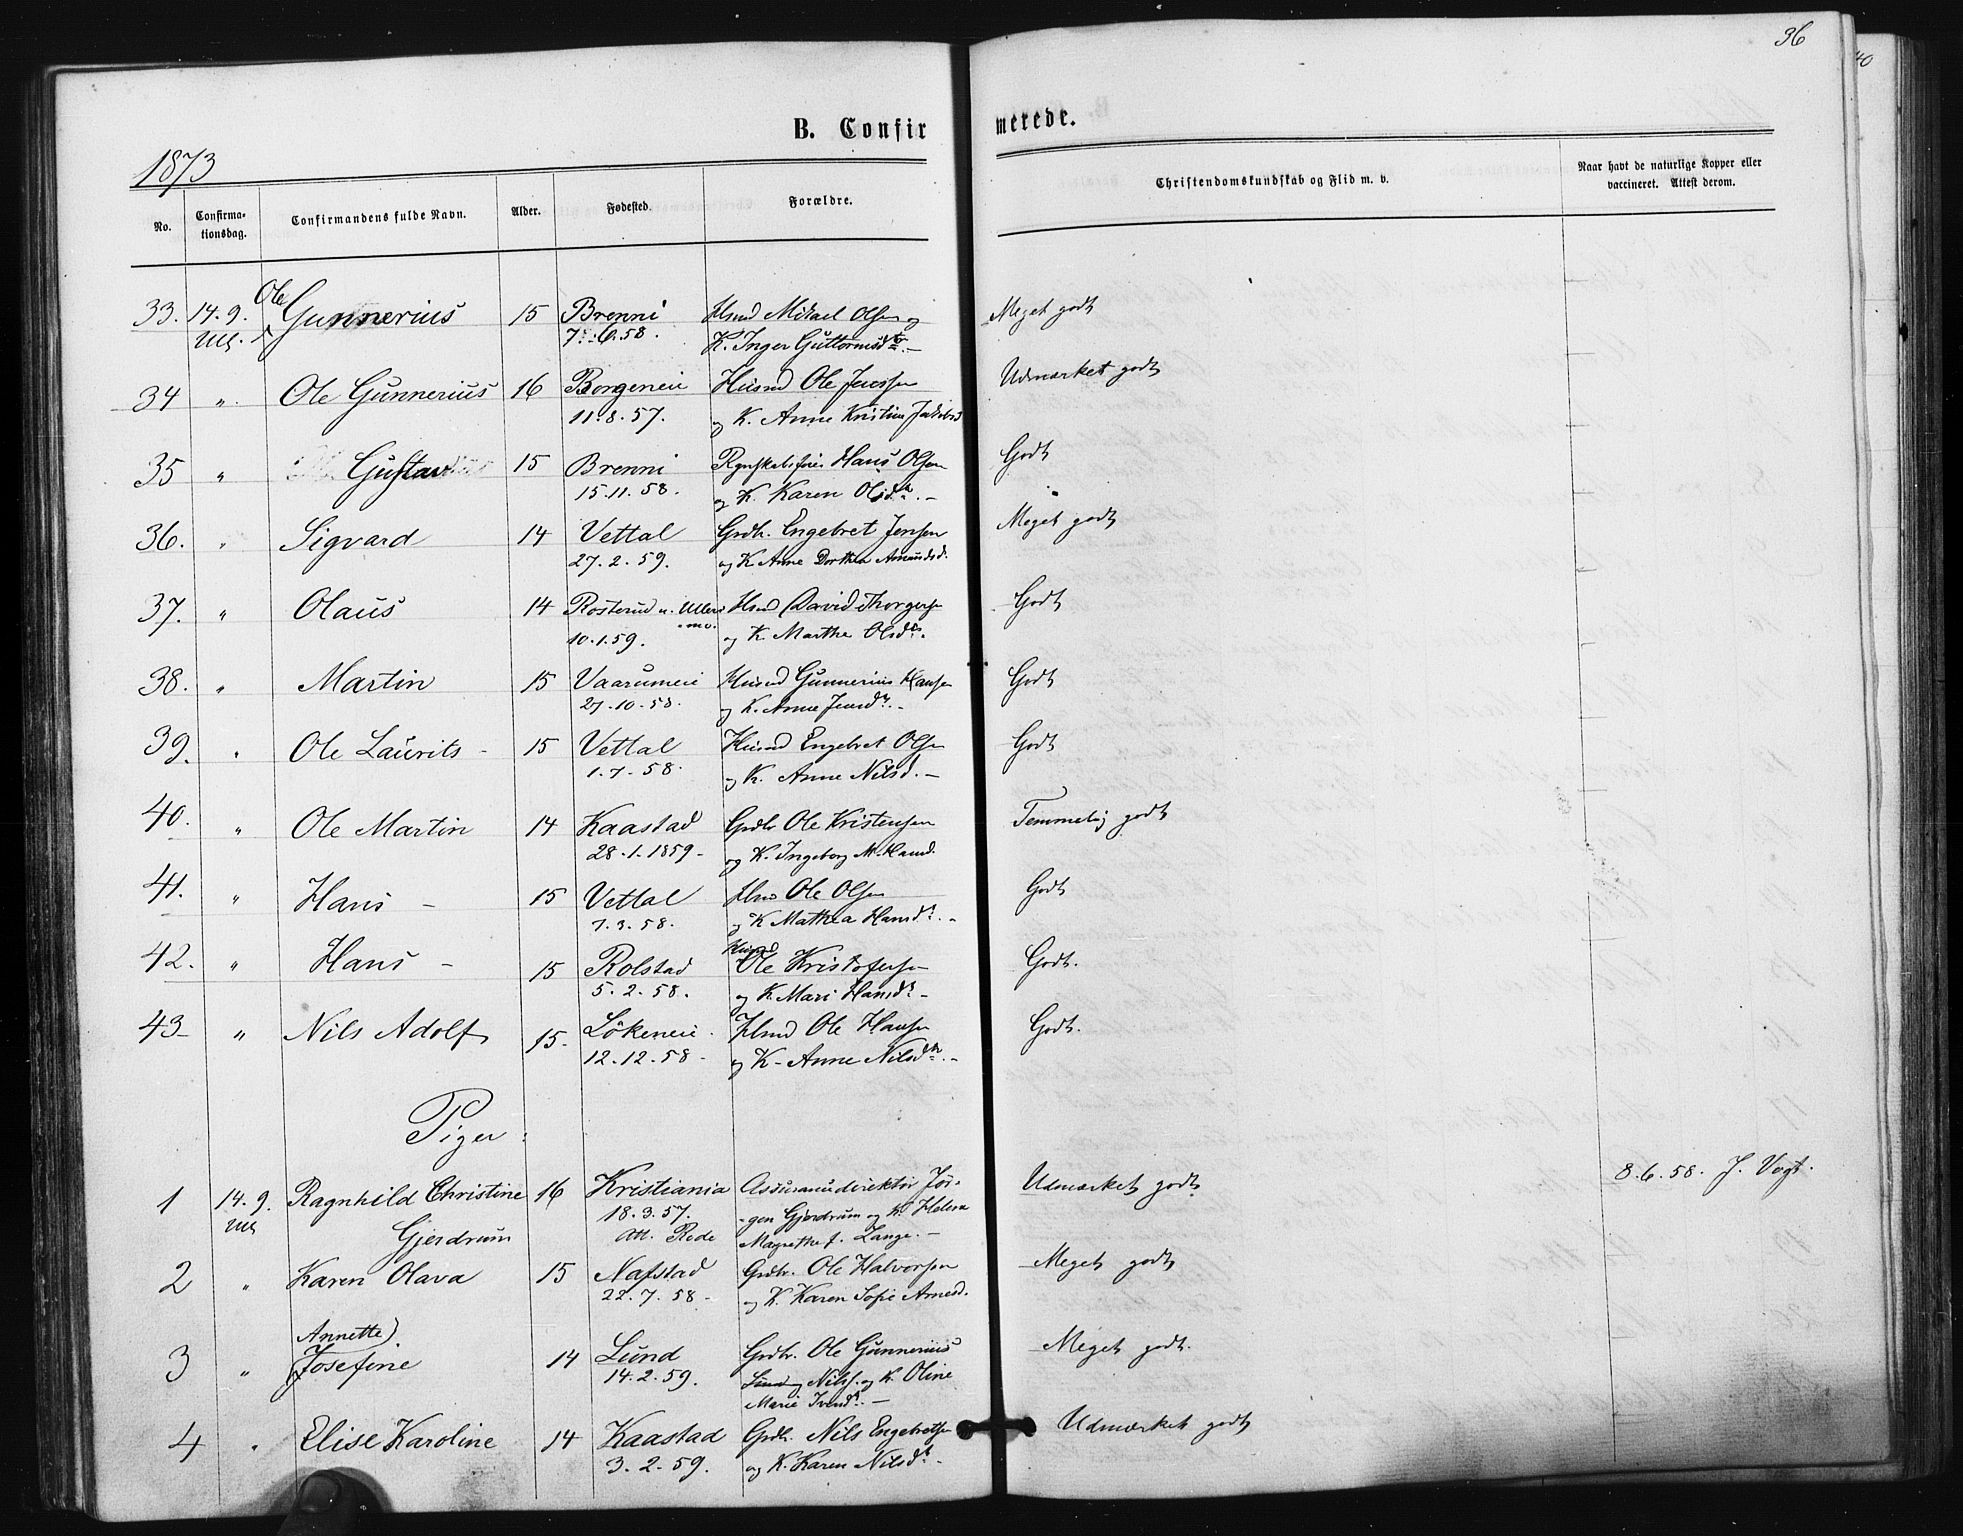 36
40
B. Confir merede.
1873
No. Confirma-tionsdag. Confirmandens fulde Navn. Alder. Fødested. Forældre. Christendomskundskab og Flid m. v. Naar havt de naturlige Kopper eller vaccineret. Attest derom.
33. 14.9. Ole Gunnerius 15 Brenni Husmd Mikael Olsen og Meget godt
Ull. 7.6.58. K. Inger Guttormsdtr. —
34 " Ole Gunnerius 16 Borgeneie Husmd Ole Jenssen Udmærket godt
11.8.57. og K. Anne Kristine Jakobsd
35 " Gustav 15 Brenni Hans Olsen Godt
15.11.58. og K. Karen Olsdr. —
36. " Sigvard 14 Vettal Grdbr. Engebret Jensen Meget godt
27.2.59. og K. Anne Dorthea Amundsd.
37. " Olaus 14 Rosterud u. Ullers Hsmd David Thorgersen Godt
-mo.
10.1.59. og K. Marthe Olsdr.
38. " Martin 15 Vaarumeie Husmd Gunnerius Hansen Godt
27.10.58. og K. Anne Jensdr. —
39. " Ole Laurits - 15 Vettal Husmd Engebret Olsen Godt
1.7.58. og K. Anne Nilsd. —
40. " Ole Martin 14 Kaastad Grdbr Ole Kristensen Temmelig godt
28.1.1859 - og K. Ingeborg M. Hansd.
41. " Hans — 15 Vettal Hsm Ole Olsen Godt
7.3.58. og K Mathea Hansdr. -
42. " Hans - 15 Rolstad Husmd Ole Kristofersen Godt.
5.2.58. og K. Mari Hansdr. —
43- " Nils Adolf 15- Løkeneie. Hsmd Ole Hansen Godt.
12.12.58 - og K - Anne Nilsdr. —
Piger:
1 14.9. Ragnhild Christine 16 Kristiania Assurancedirektør Jør- Udmærket godt 8.6.58. J. Vogt.
Ull Gjerdrum 18.3.57. -gen Gjerdrum og K. Helena
Att. Rede Magrethe f. Lange. —
2 " Karen Olava 15 Nafstad Grdbr. Ole Halvorsen Meget godt
22.7.58 - og K. Karen Sofie Arnesd.
3 " Annette) Josefine 14 Lund Grdbr. Ole Gunnerius Meget godt.
14.2.59. Nilss. og K. Oline
Marie Iversdr. —
4 " Elise Karoline 14 Kaastad Grdbr. Nils Engebretsen Udmærket godt
3.2.59. og K. Karen Nilsdr. -